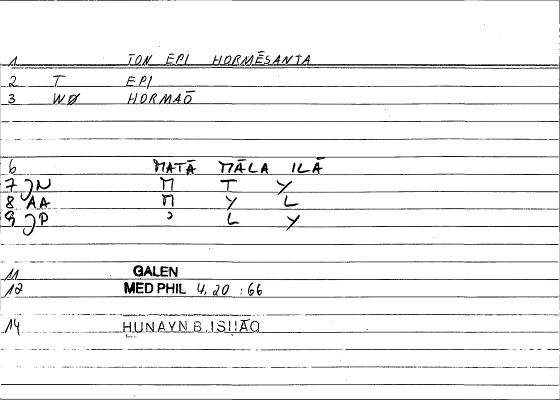 1 TON EPI HORMĒSANTA
2 T EPI
3 WØ HORMAŌ
6 MATĀ MĀLA ILĀ
7 JN M T Y
8 AA M Y L
9 JP ʾ L Y
11 GALEN
12 MED PHIL 4, 20 : 66
14 HUNAYN B. ISḤĀQ